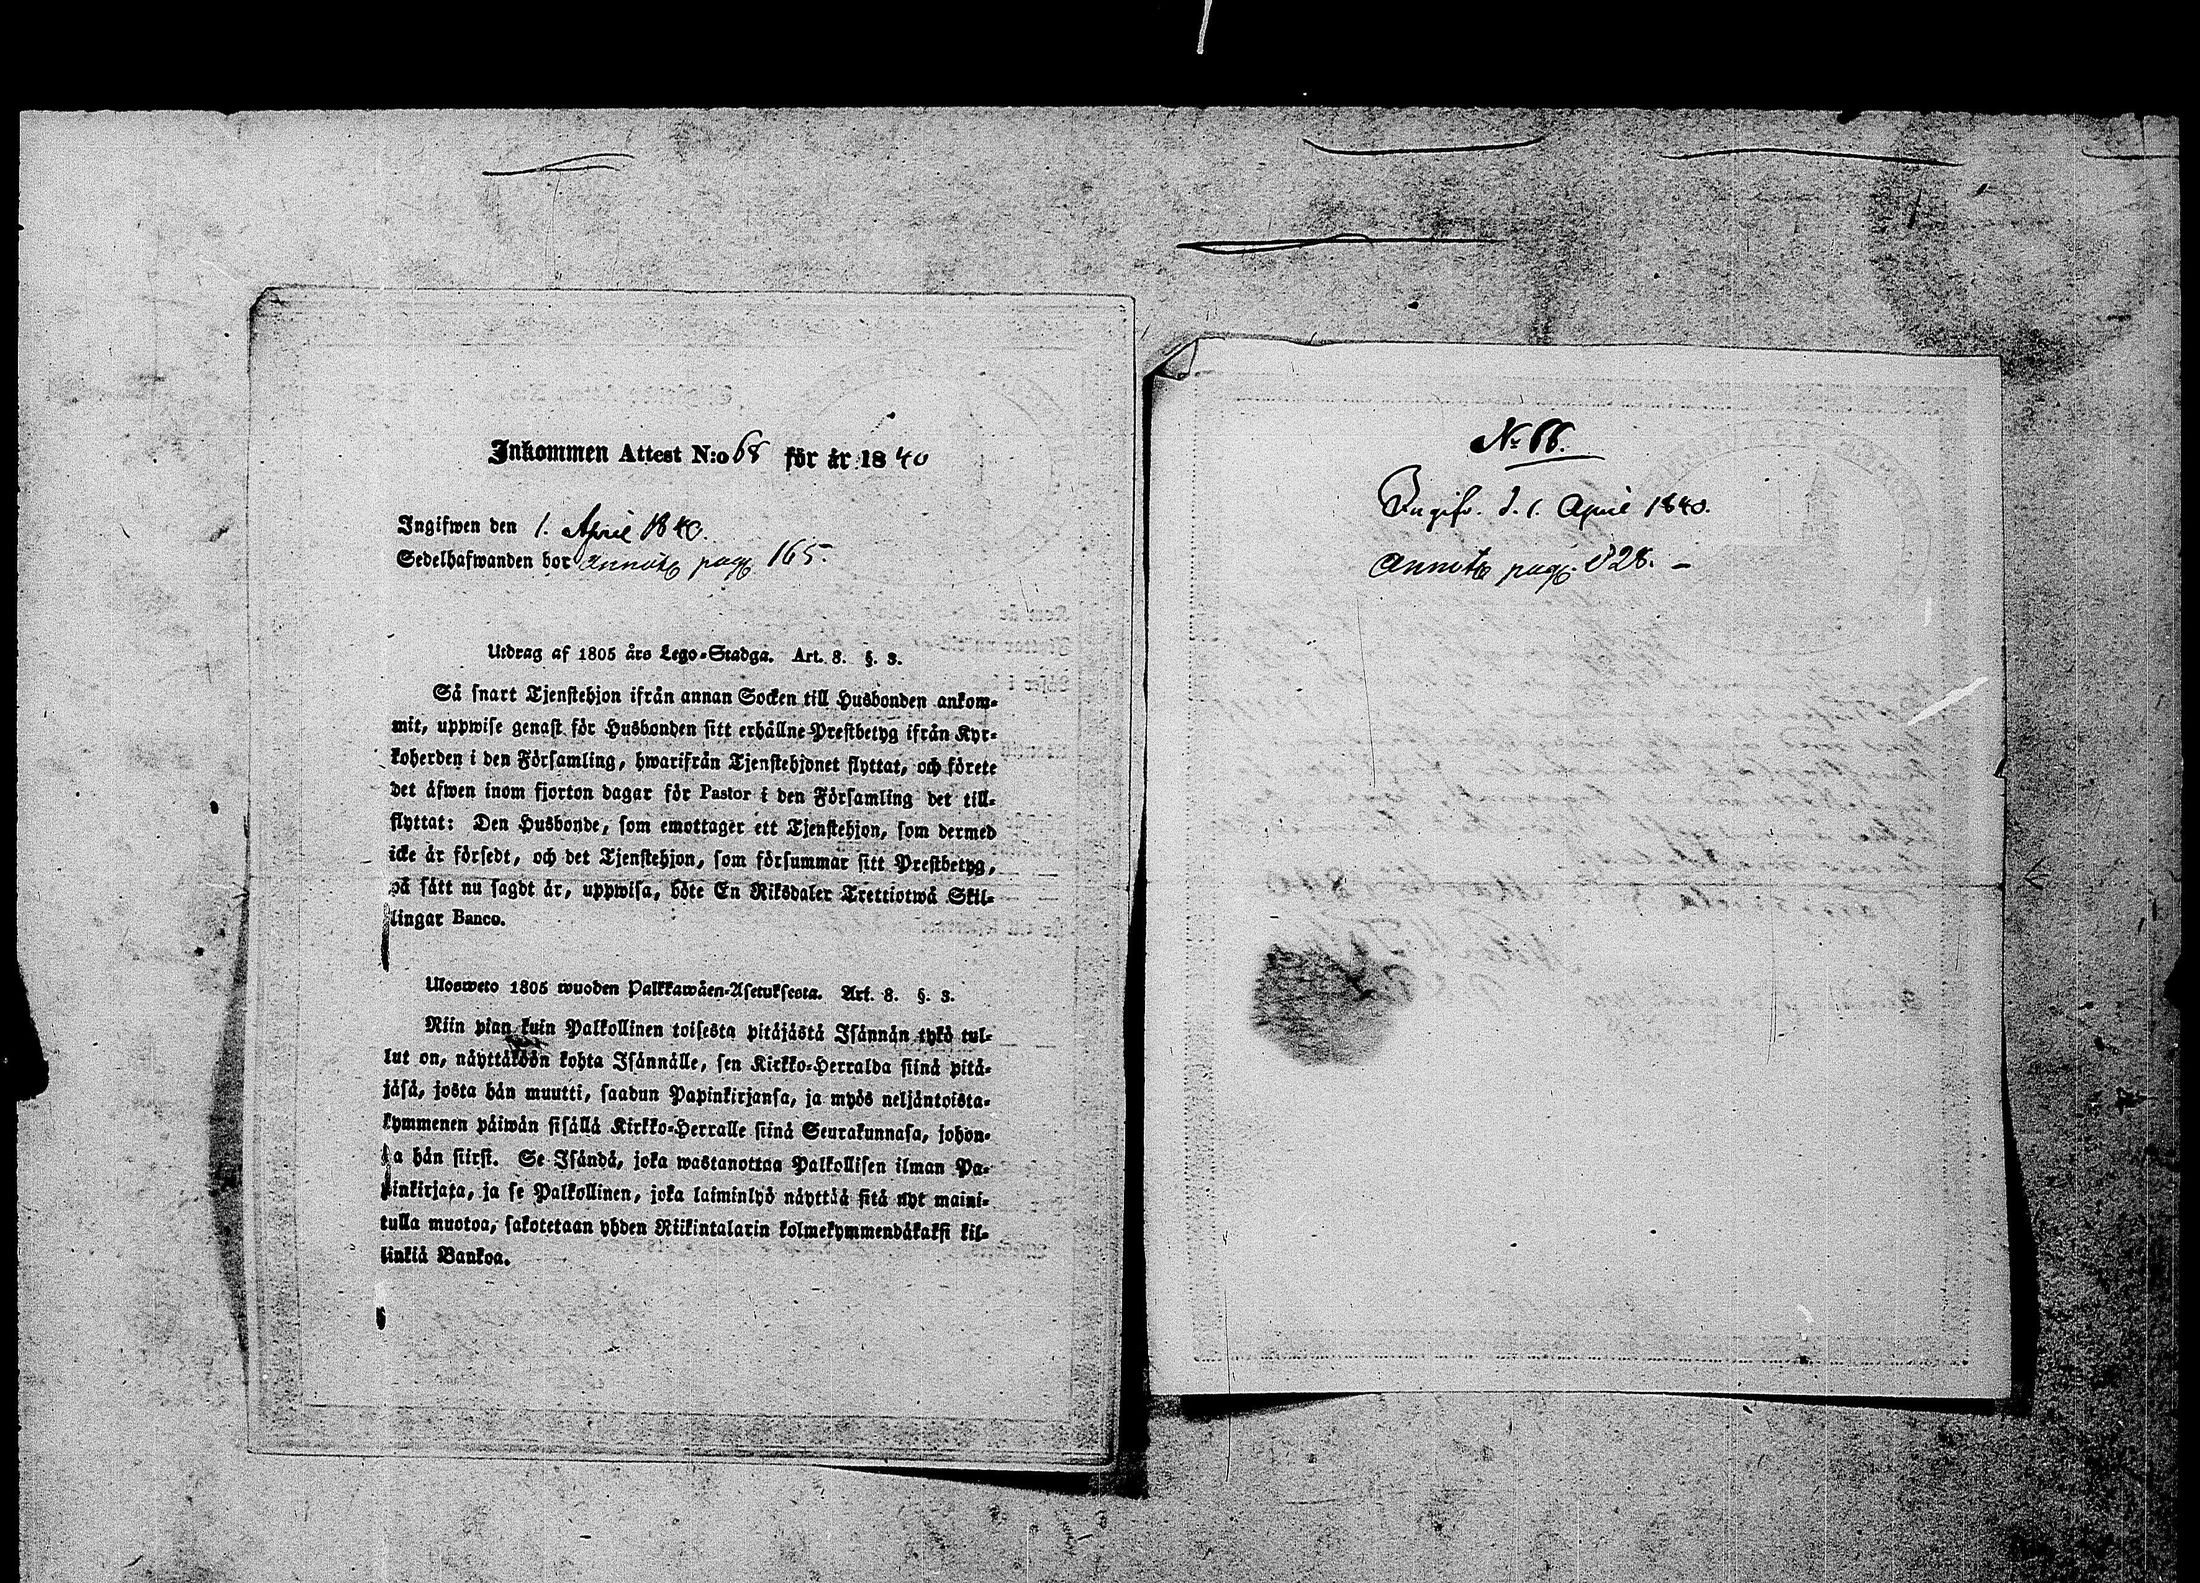 Inkommen Attest N:o 68 för år 1840
Ingifwen den 1. April 1840.
Sedelhafwanden bor annot. pag. 165.
Utdrag af 1805 års Lego-Stadga. Art. 8. §. 3.
Så snart Tjenstehjon ifrån annan Socken till Husbonden ankom-
mit, uppwise genast för Husbonden sitt erhållne Prestbetyg ifrån Kyr-
koherden i den Församling, hwarifrån Tjenstehjonet flyttat, och förete
det åfwen inom fjorton dagar för Pastor i den Församling det till-
flyttat: Den Husbonde, som emottager ett Tjenstehjon, som dermed
icke är försedt, och det Tjenstehjon, som försummar sitt Prestbetyg,
på sått nu sagdt är, uppwisa, böte En Riksdaler Trettiotwå Skil-
lingar Banco.
Ulosweto 1805 wuoden Palkkawäen-Asetuksesta. Art. 8. §. 3.
Niin pian kuin Palkollinen toisesta pitäjästä Isännän tykö tul-
lut on, näyttäköön kohta Isännälle, sen Kirkko-Herralda siinä pitä-
jäsä, josta hän muutti, saadun Papinkirjansa, ja myös neljäntoista-
kymmenen päiwän sisällä Kirkko-Herralle siinä Seurakunnasa, johon-
ka hän siirsi. Se Isändä, joka wastanottaa Palkollisen ilman Pa-
pinkirjata, ja se Palkollinen, joka laiminlyö näyttää sitä nyt maini-
tulla muotoa, sakotetaan yhden Riikintalarin kolmekymmendäkaksi kil-
linkiä Bankoa.
N. 66.
Ingifv. d. 1. April 1840.
annot. pag. 328. -